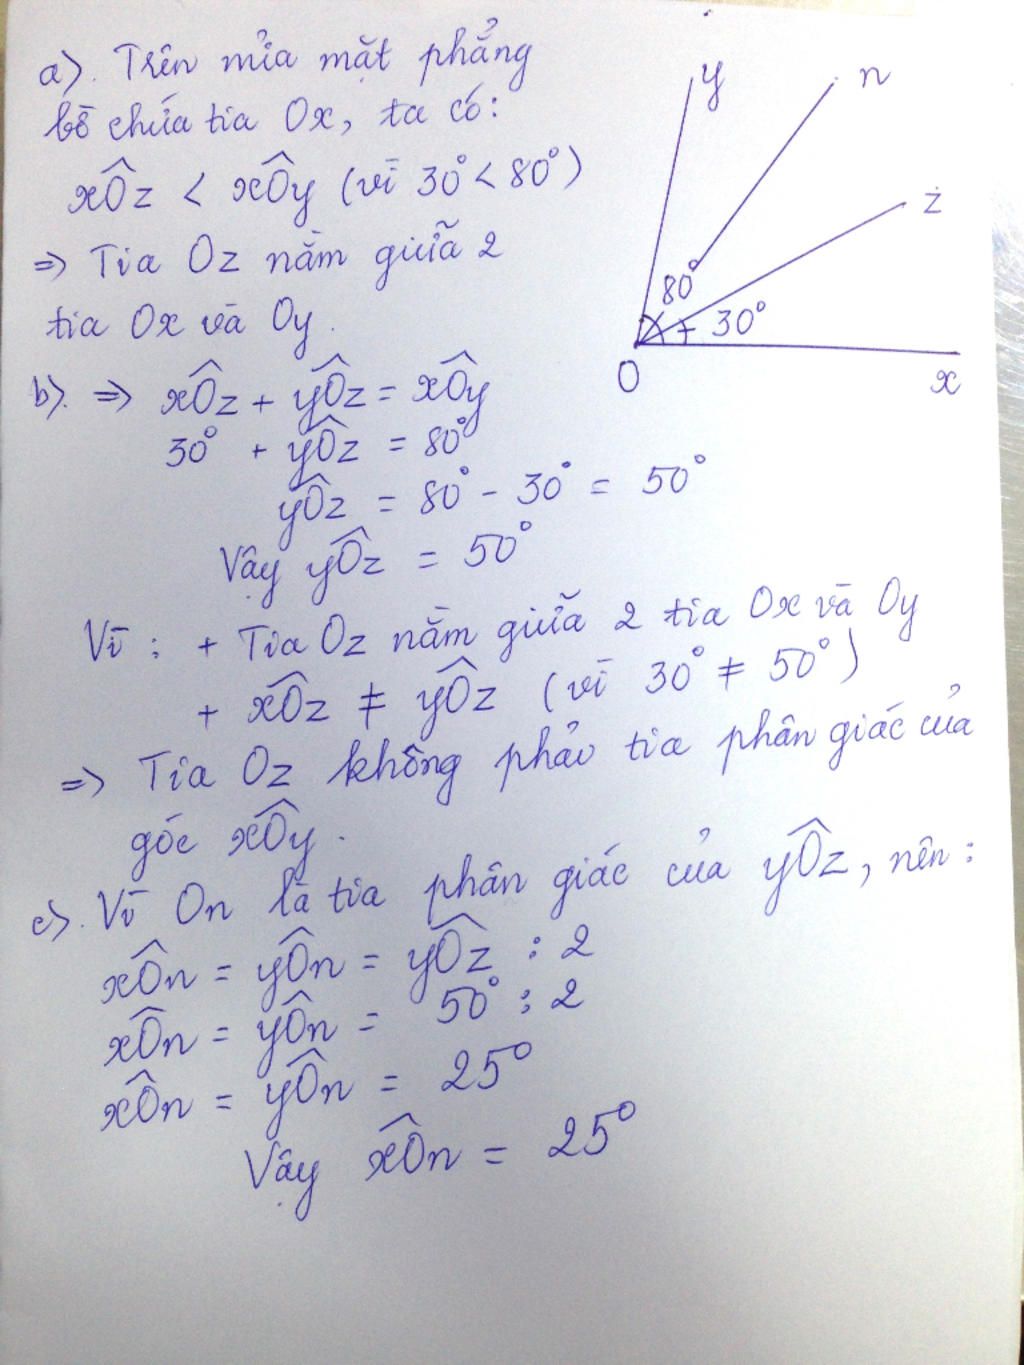 a). Trên mỉa mặt phẳng
bờ chứa tia Ox, ta có:
xÔz < xÔy (vì 30° < 80°)
=> Tia Oz nằm giữa 2
tia Ox và Oy.
b). => xÔz + yÔz = xÔy
30° + yÔz = 80°
yÔz = 80° - 30° = 50°
Vậy yÔz = 50°
Vì : + Tia Oz nằm giữa 2 tia Ox và Oy
+ xÔz ≠ yÔz (vì 30° ≠ 50°)
=> Tia Oz không phải tia phân giác của
góc xÔy.
c). Vì On là tia phân giác của yÔz, nên :
xÔn = yÔn = yÔz : 2
xÔn = yÔn = 50° : 2
xÔn = yÔn = 25°
Vậy xÔn = 25°
y
n
z
80°
30°
O
x